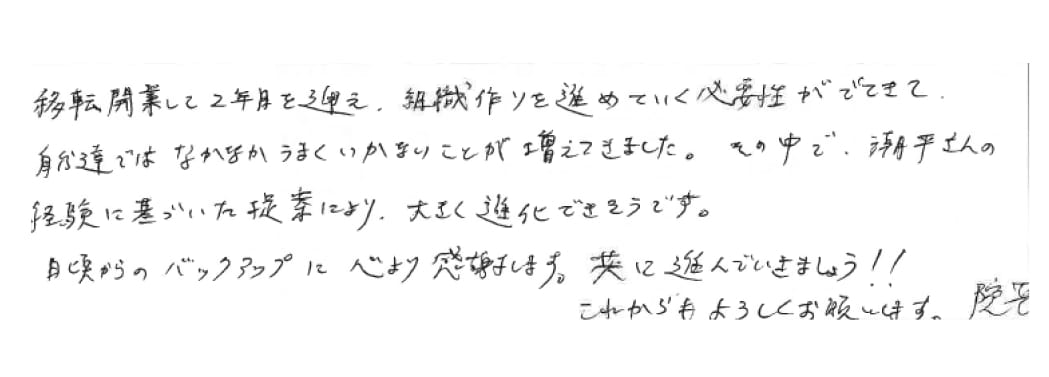 移転開業して2年目を迎え、組織作りを進めていく必要性がでてきて、
自分達ではなかなかうまくいかないことが増えてきました。その中で、潮平さんの
経験に基づいた提案により、大きく進化できそうです。
日頃からのバックアップに心より感謝します。共に進んでいきましょう!!
これからもよろしくお願いします。院長